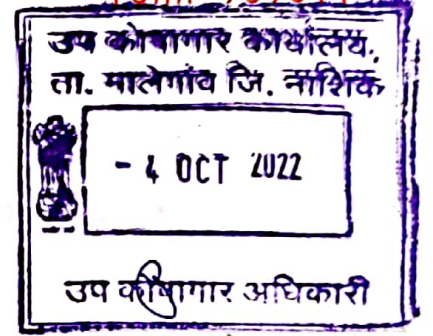 उप कोषागार कार्यालय.
ता. मालेगांव जि. नाशिक
- 4 OCT 2022
उप कोषागार अधिकारी